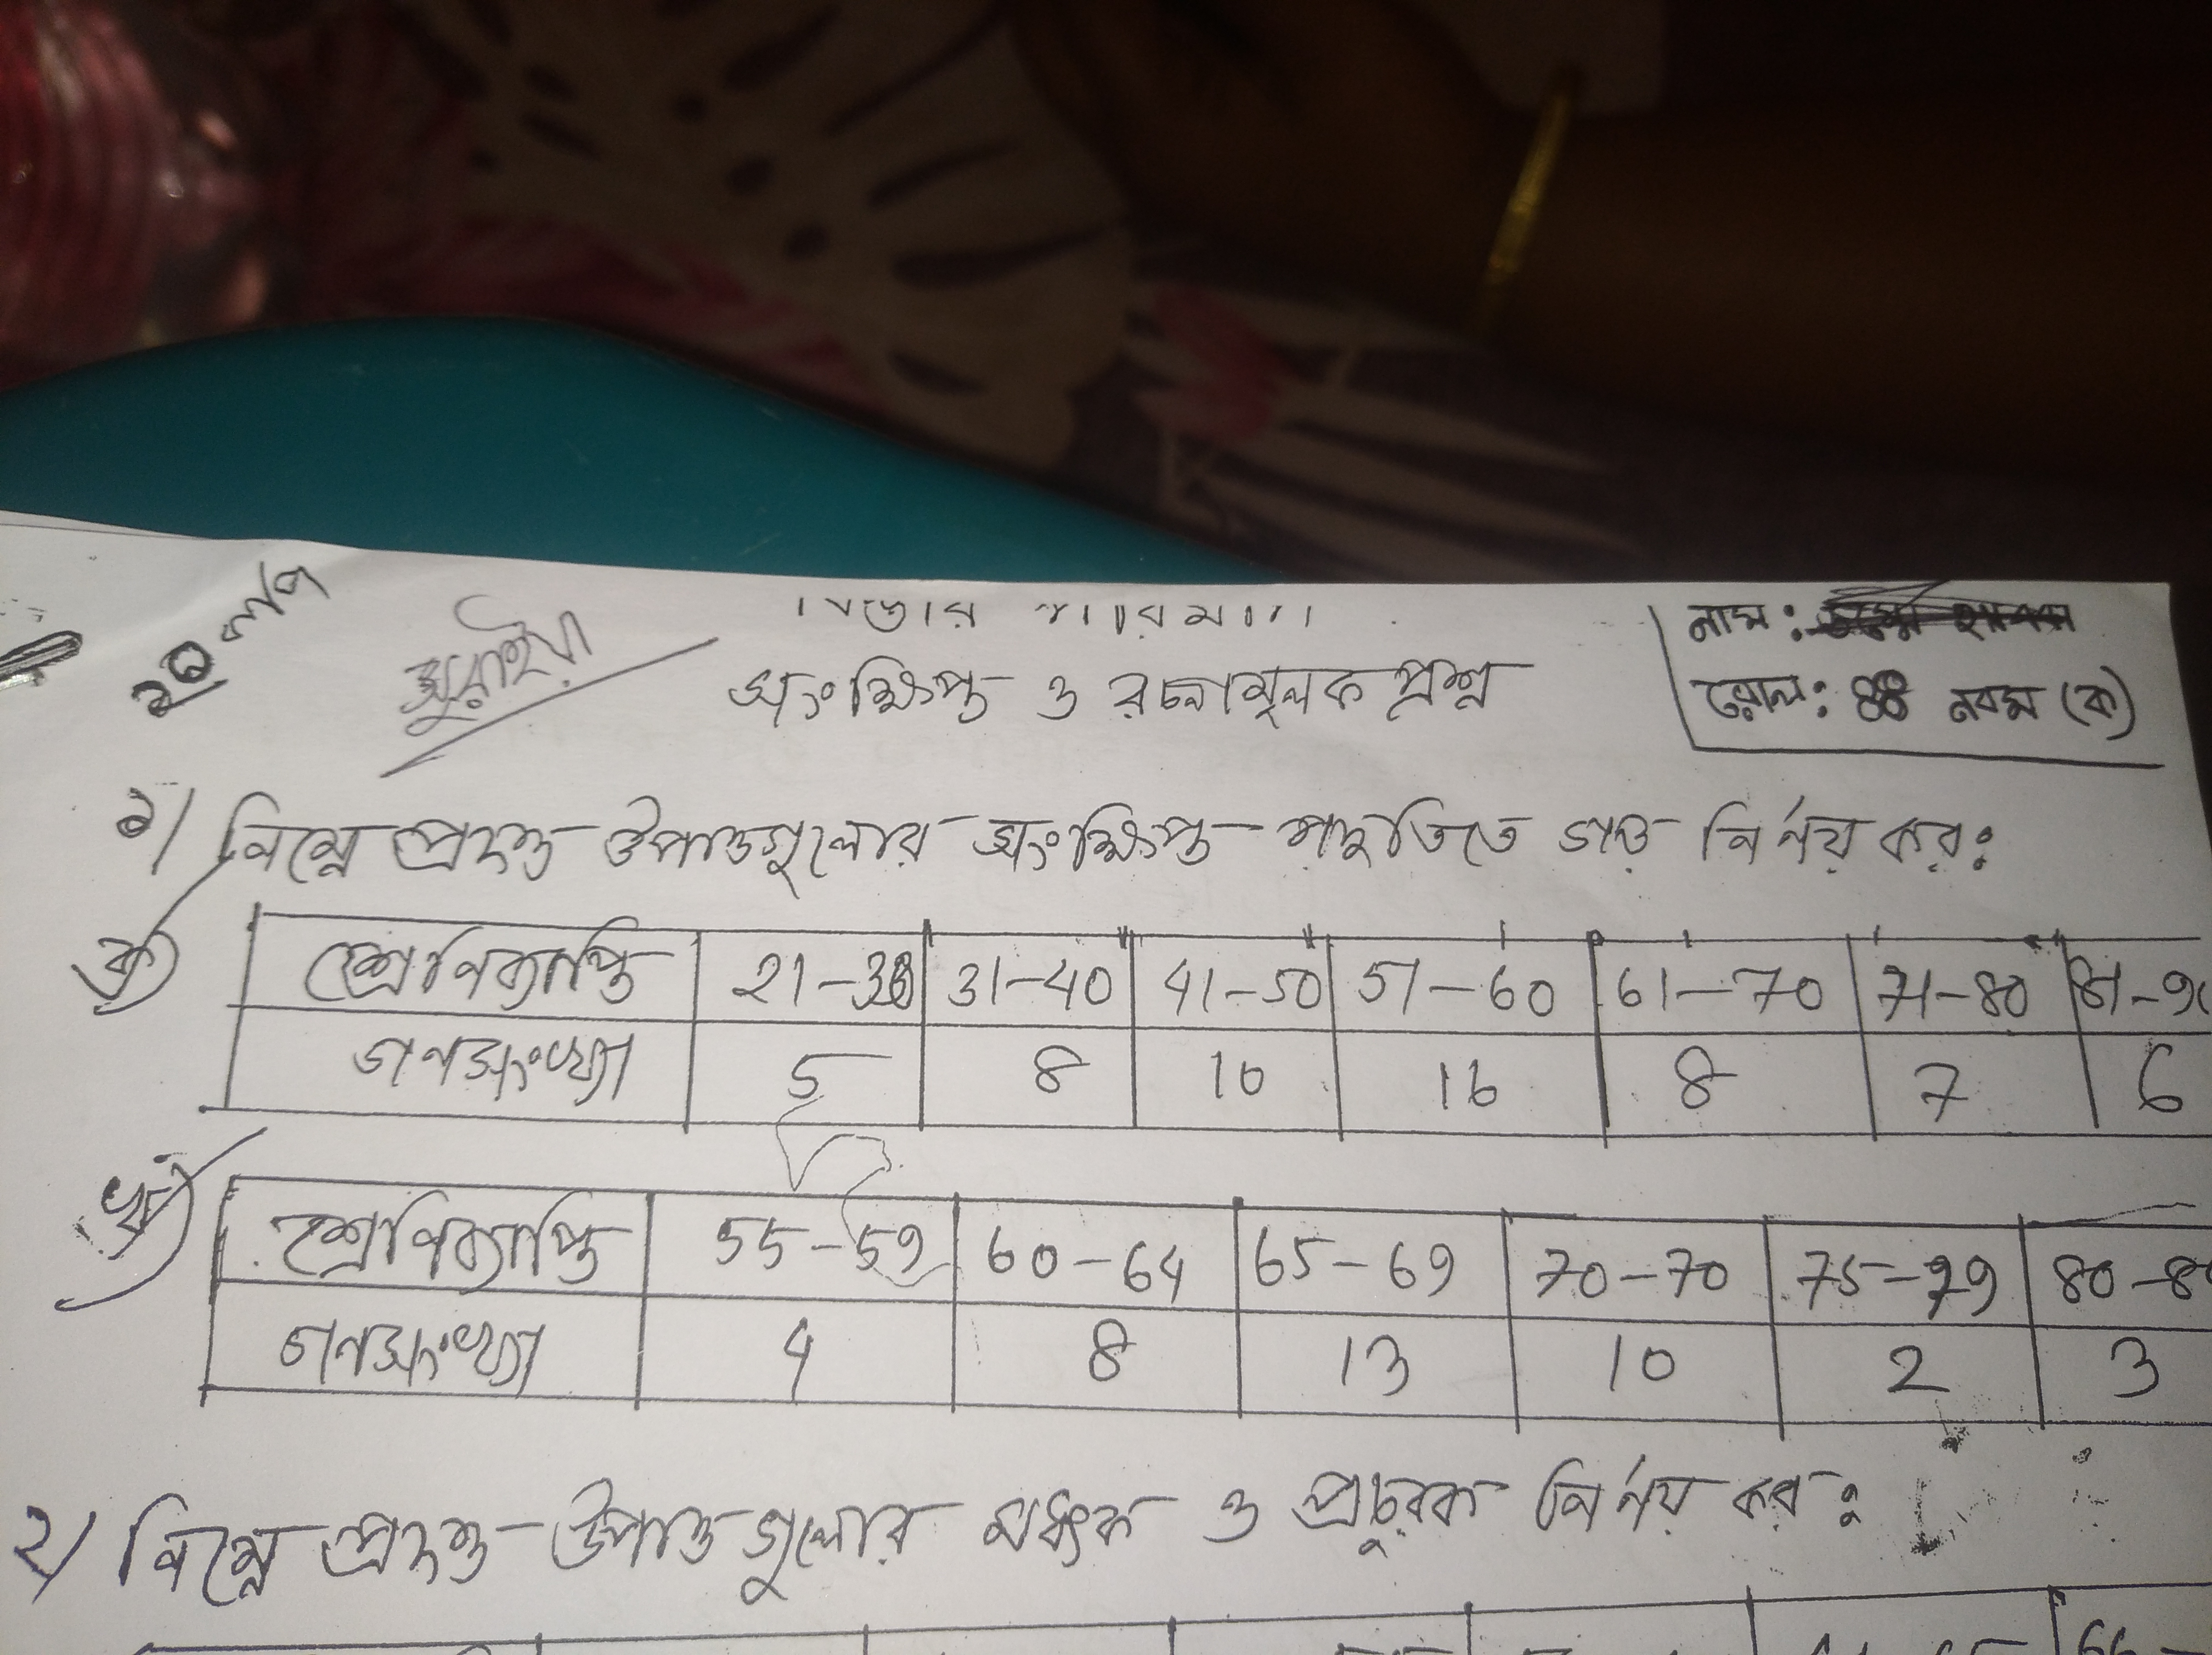 সুরাইয়া
নাম:
সংক্ষিপ্ত ও রচনামূলক প্রশ্ন
রোল: 88 নবম (ক)
১/ নিম্নে প্রদত্ত উপাত্তগুলোর সংক্ষিপ্ত পদ্ধতিতে গড় নির্ণয় কর:
ক) শ্রেণিব্যাপ্তি 21-30 31-40 41-50 51-60 61-70 71-80
গনসংখ্যা 5 8 10 16 8 7 6
খ) শ্রেণিব্যাপ্তি 55-59 60-64 65-69 70-70 75-79
গনসংখ্যা 4 8 13 10 2 3
২/ নিম্নে প্রদত্ত উপাত্তগুলোর মধ্যক ও প্রচুরক নির্ণয় কর: